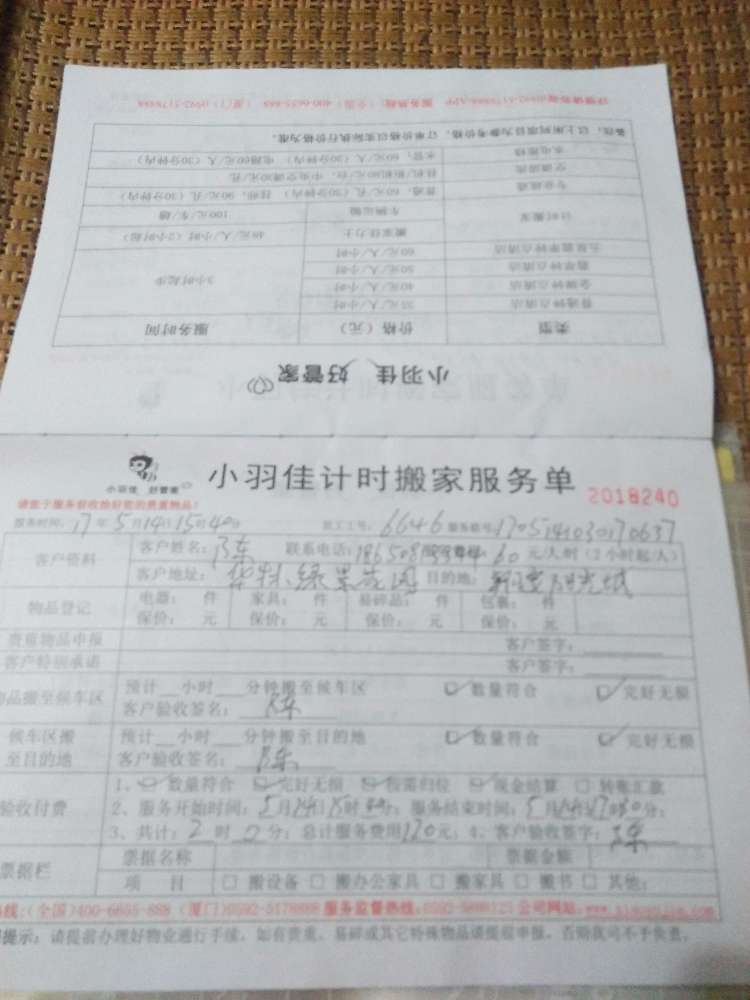 小羽佳 好管家
类型 价格(元) 服务时间
普通钟点清洁 35元/人/小时 3小时起步
金牌钟点清洁 40元/人/小时
翡翠钟点清洁 50元/人/小时
五星翡翠钟点清洁 60元/人/小时
计时搬家 搬家佳力士 48元/人/小时(2小时起)
车辆运输 100元/车/趟
专业疏通 普通:60元/孔(30分钟内) 挂排:90元/孔(30分钟内)
空调清洗 挂机/柜机80元/台,中央空调30元/孔
水电维修 水管:60元/人(30分钟内) 电路60元/人(30分钟内)
备注:以上所列项目为参考价格,订单价格以实际执行价格为准。
小羽佳 好管家
小羽佳计时搬家服务单
2018240
请您于服务前收捡好您的贵重物品!
服务时间:17年5月14日15时40分 员工工号:6646 服务账号:170514103017
客户资料 客户姓名:陈 联系电话: 60元/人/时(2小时起/人)
客户地址:华林绿景花园 目的地: 阳光城
物品登记 电器: 件 家具: 件 易碎品: 件 包裹: 件
保价: 元 保价: 元 保价: 元 保价: 元
贵重物品申报 客户签字:
客户特别承诺 客户签字:
物品搬至候车区 预计 小时 分钟搬至候车区 数量符合 完好无损
客户验收签名:陈
候车区搬至目的地 预计 小时 分钟搬至目的地 数量符合 完好无损
客户验收签名:陈
验收付费 1、数量符合 完好无损 按需归位 现金结算 转账汇款
2、服务开始时间:5月14日15时 分;服务结束时间:5月14日17时 分;
3、共计:2时0分;总计服务费用120元;4、客户验收签字:陈
票据栏 票据名称 票据金额
项 目 搬设备 搬办公家具 搬家具 搬书 其他:
热线:(全国)400-6655-888 (厦门)0592-5178888 服务监督热线: 公司网站:
提示:请提前办理好物业通行手续,如有贵重、易碎或其它特殊物品请提前申报,否则我司不予负责。